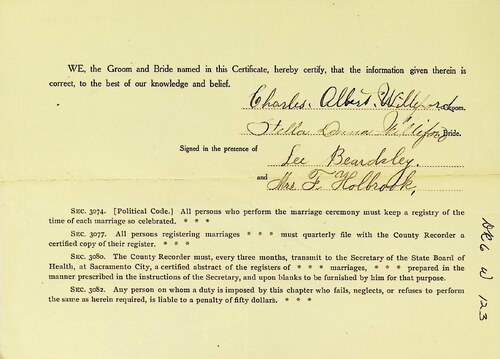 WE, the Groom and Bride named in this Certificate, hereby certify, that the information given therein is
correct, to the best of our knowledge and belief.
Charles Albert Williford Groom.
Stella Williford Bride.
Signed in the presence of
Lee Beardsley.
and Mrs F. Holbrook.
SEC. 3074. [Political Code.] All persons who perform the marriage ceremony must keep a registry of the
time of each marriage so celebrated. * * *
SEC. 3077. All persons registering marriages * * * must quarterly file with the County Recorder a
certified copy of their register. * * *
SEC. 3080. The County Recorder must, every three months, transmit to the Secretary of the State Board of
Health, at Sacramento City, a certified abstract of the registers of * * * marriages, * * * prepared in the
manner prescribed in the instructions of the Secretary, and upon blanks to be furnished by him for that purpose.
SEC. 3082. Any person on whom a duty is imposed by this chapter who fails, neglects, or refuses to perform
the same as herein required, is liable to a penalty of fifty dollars. * * *
W 123